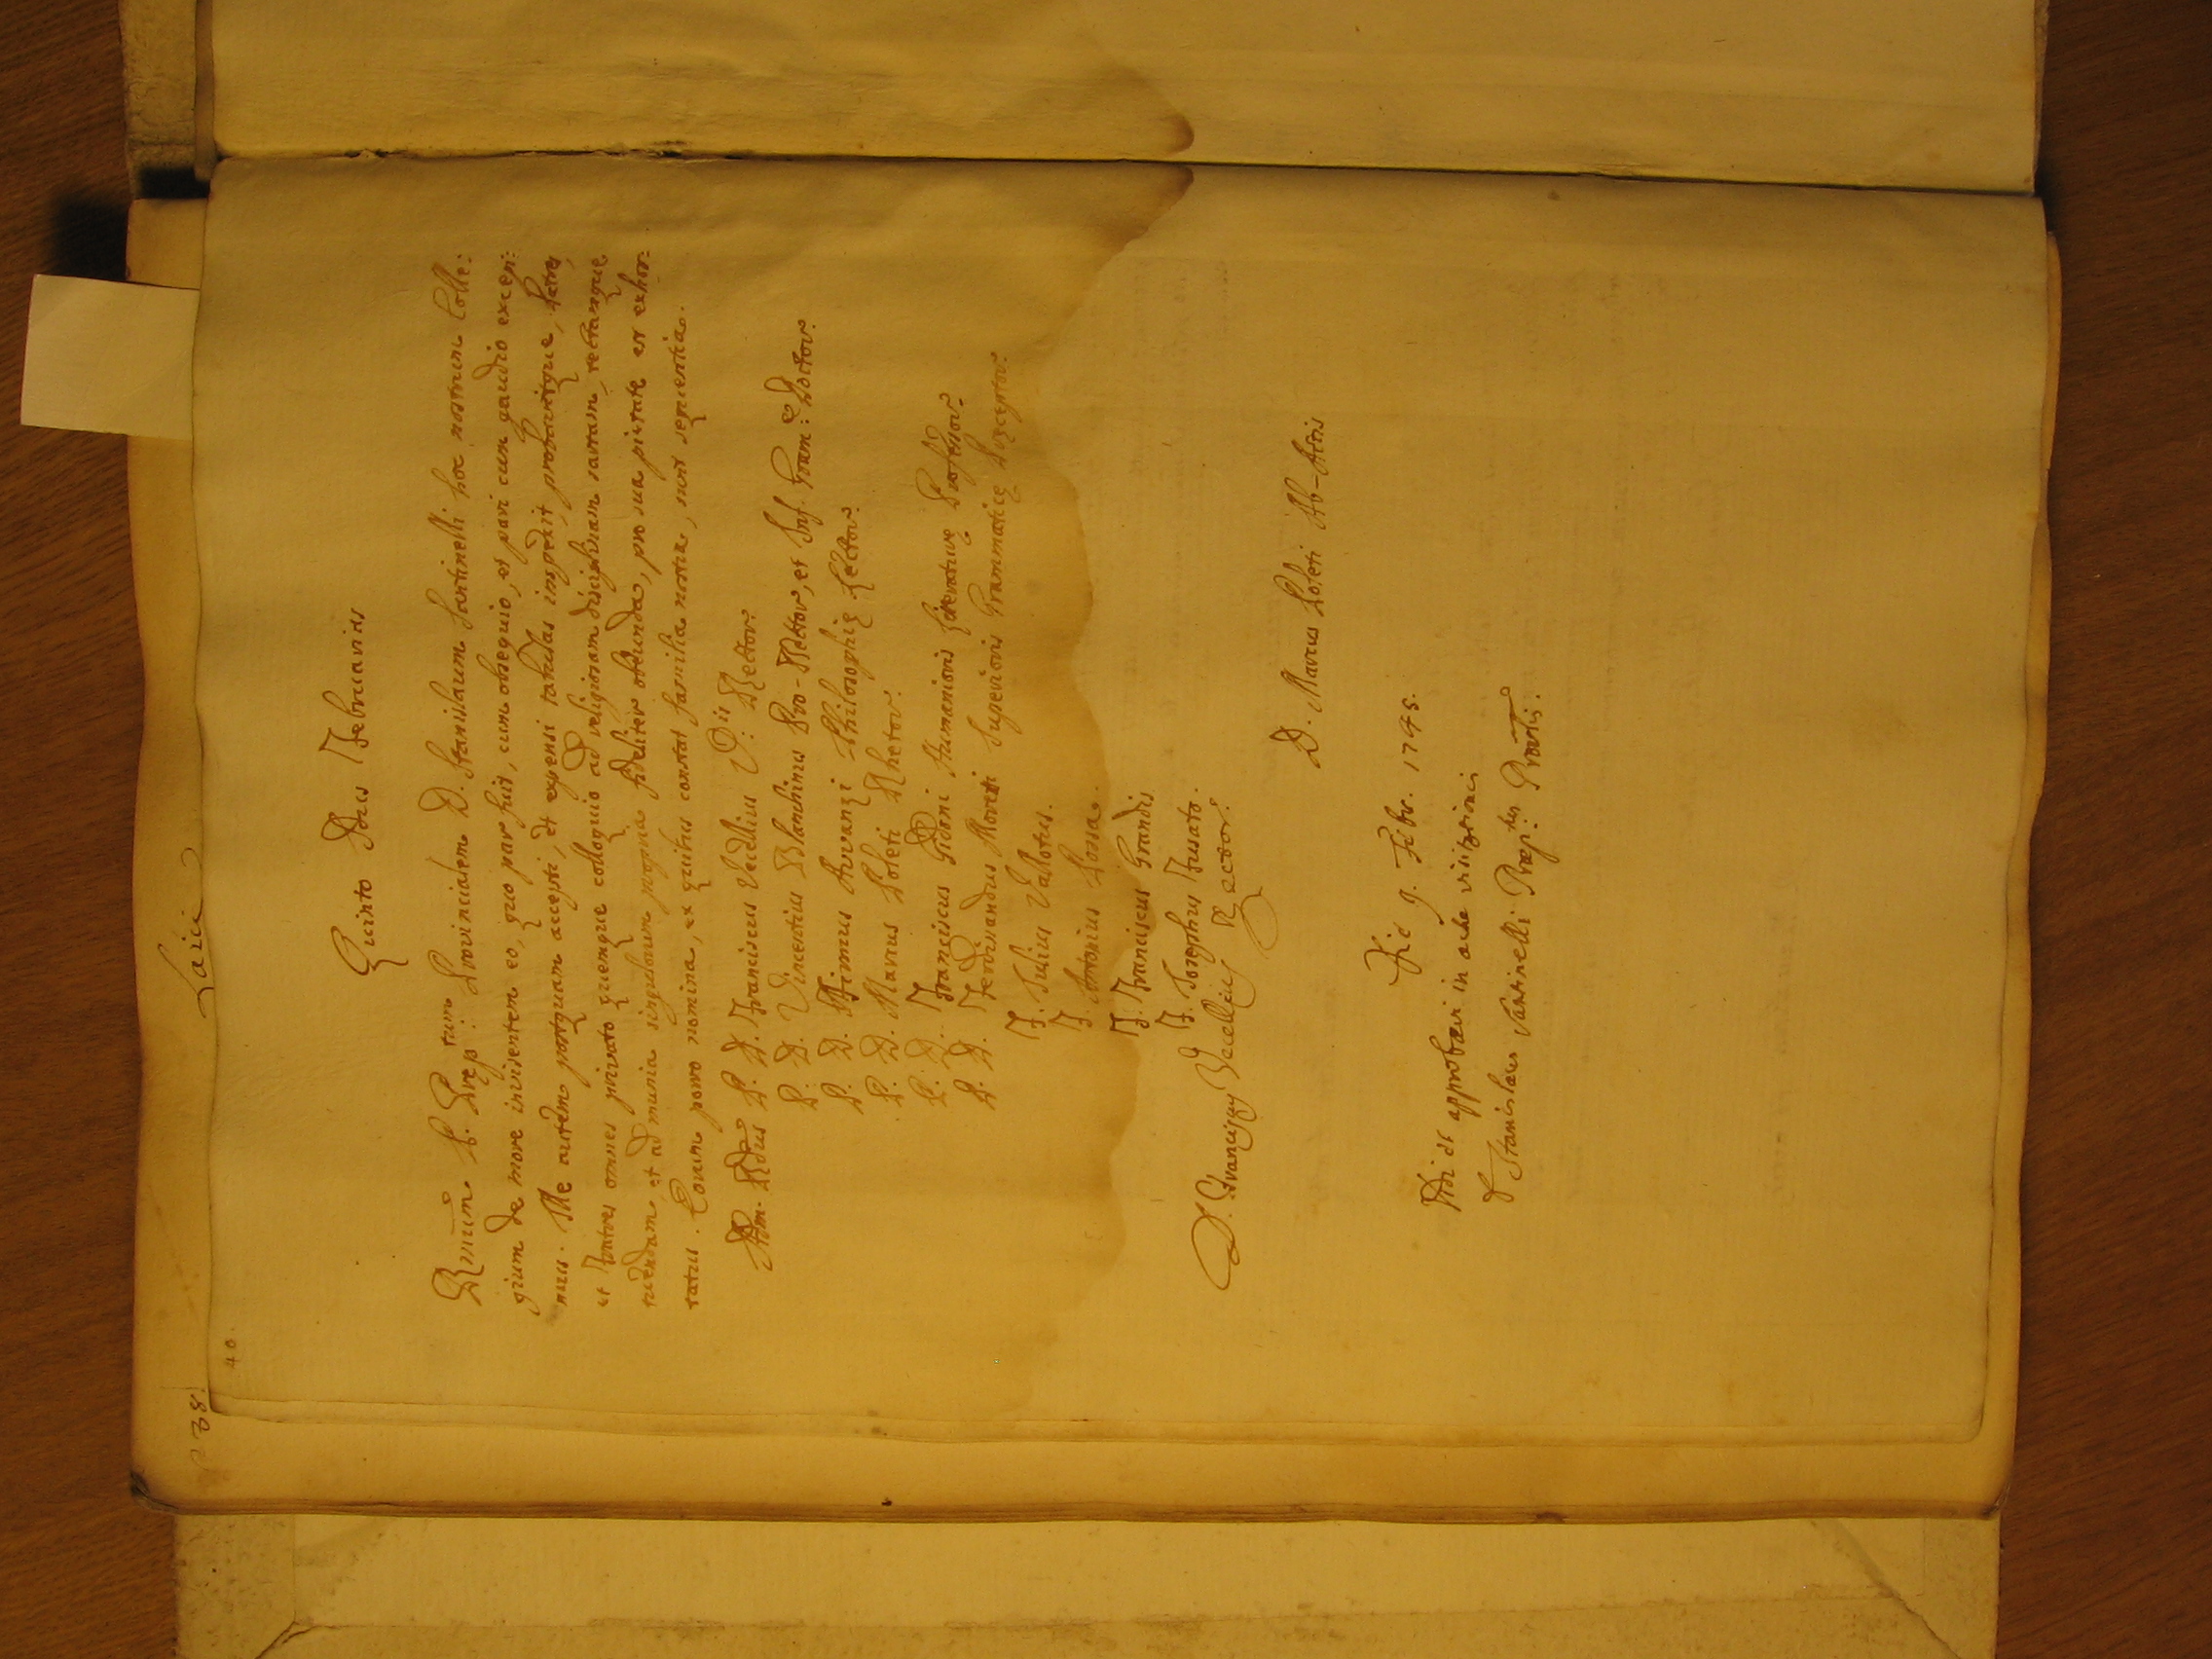 Laici
38
40
Quinto Idus Februarias
Rmum P. Præp:tum Provincialem D. Stanislaum Santinelli hoc nostrum Colle:
gium de more invisentem eo, quo par fuit, cum obsequio, et pari cum gaudio excepi:
mus. Ille autem postquam accepti, et expensi tabulas inspexit, probavitque, Patres,
et Fratres omnes privato quemque colloquio ad religiosam disciplinam sartam, tectamque
tuendam, et ad munia singulorum propria fideliter obeunda, pro sua pietate est exhor:
tatus. Eorum porro nomina, ex quibus constat familia nostra, sunt sequentia.
Adm. Rdus P. D. Franciscus Vecellius V: ii Rector.
P. D. Vincentius Blanhinus Pro-Rector, et Inf. Gram: Doctor.
P. D. Firmus Avvanzi Philosophię Lector.
P. D. Marcus Poleti Rhetor.
P. D. Franciscus Gidoni Humanioris Literaturę Professor.
P. D. Ferdinandus Moreti Superioris Grammaticę Pręceptor.
F. Julius Vallotus.
F. Antonius Rossa.
F. Franciscus Grandis
F. Josephus Fusato.
D. Franciscus Vecellius Rector.
D. Marcus Poleti Ab-Actis
Die 9. Febr. 1745.
Vidi et approbavi in actu visitationis
D. Stanislaus Santinelli Præp:tus Provlis.